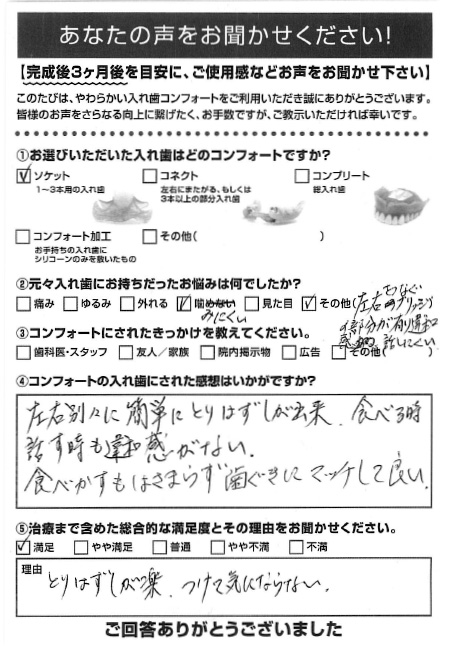 あなたの声をお聞かせください!
【完成後3ヶ月後を目安に、ご使用感などお声をお聞かせ下さい】
このたびは、やわらかい入れ歯コンフォートをご利用いただき誠にありがとうございます。
皆様のお声をさらなる向上に繋げたく、お手数ですが、ご教示いただければ幸いです。
①お選びいただいた入れ歯はどのコンフォートですか?
ソケット
1〜3本用の入れ歯
コネクト
左右にまたがる、もしくは
3本以上の部分入れ歯
コンプリート
総入れ歯
コンフォート加工
お手持ちの入れ歯に
シリコーンのみを敷いたもの
その他( )
②元々入れ歯にお持ちだったお悩みは何でしたか?
痛み ゆるみ 外れる 噛めない 見た目 その他(左右をつなぐ
みにくい ブリッジ
部分が有り違和
感 話しにくい
③コンフォートにされたきっかけを教えてください。
歯科医・スタッフ 友人/家族 院内掲示物 広告 その他( )
④コンフォートの入れ歯にされた感想はいかがですか?
左右別々に簡単にとりはずしが出来、食べる時
話す時も違和感がない。
食べかすもはさまらず歯ぐきにマッチして良い。
⑤治療まで含めた総合的な満足度とその理由をお聞かせください。
満足 やや満足 普通 やや不満 不満
理由
とりはずしが楽、つけて気にならない。
ご回答ありがとうございました